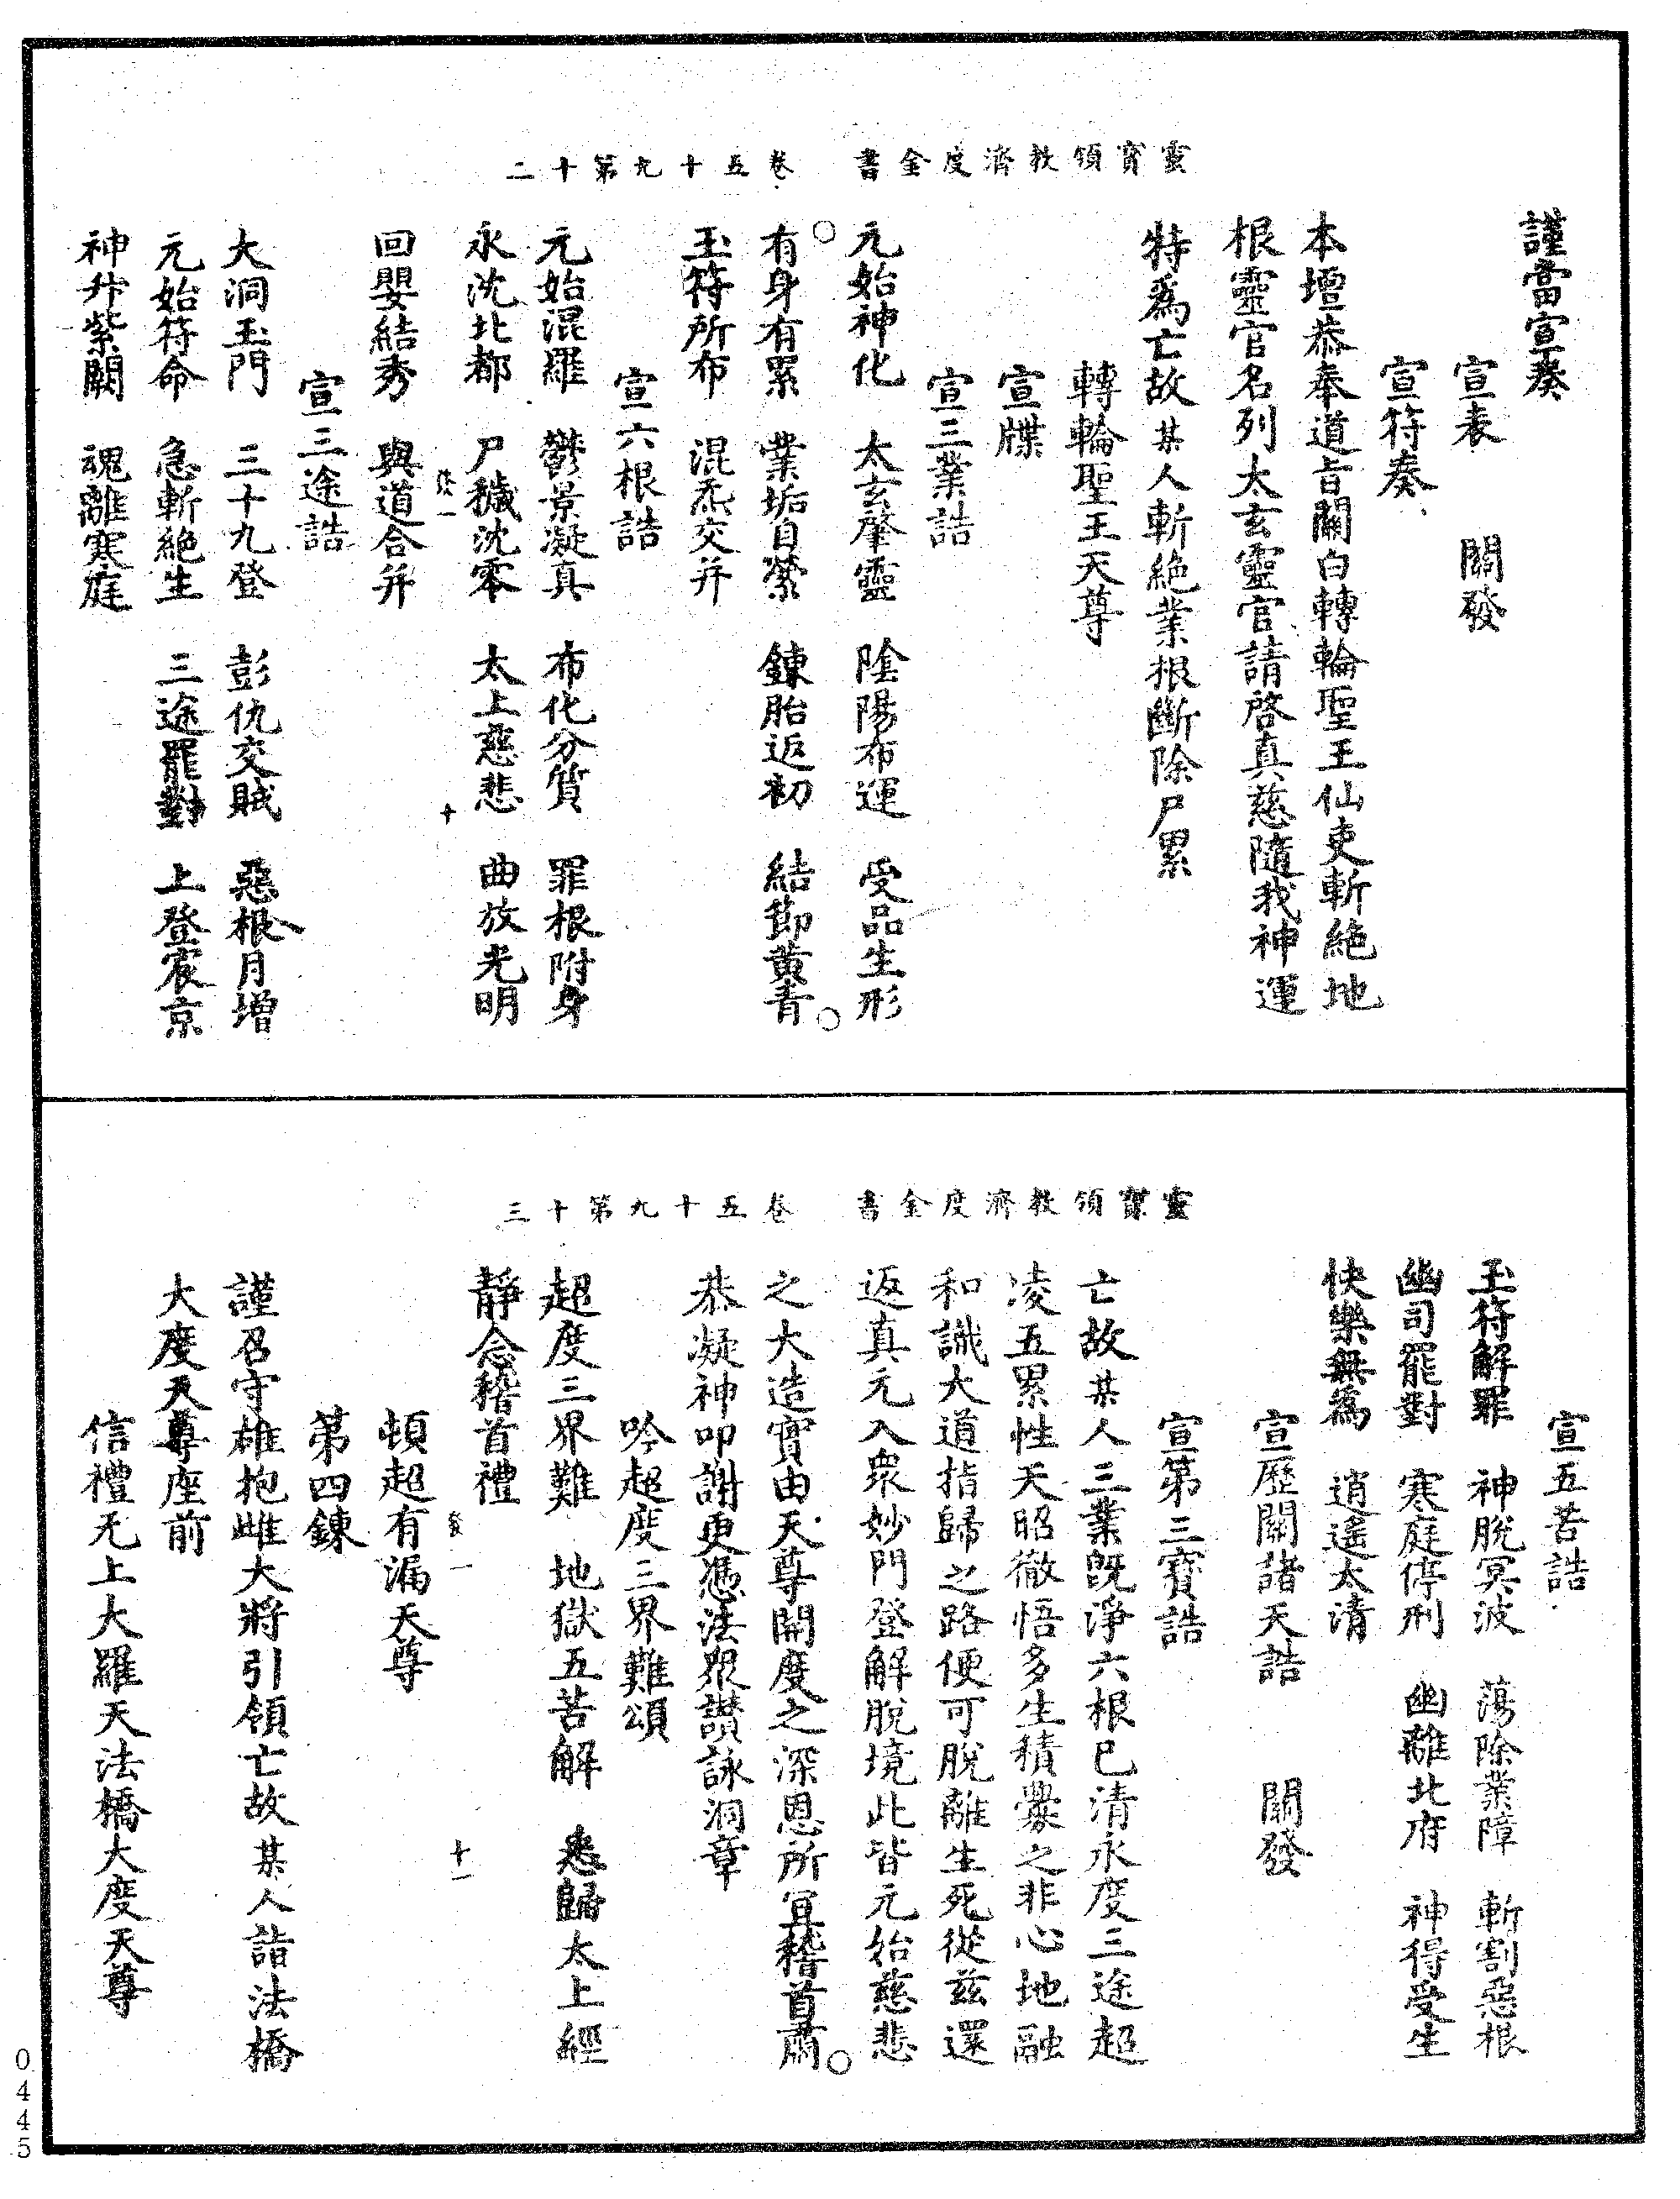 靈寶領教濟度金書　卷五十九第十二
謹當宣奏
宣表　關發
宣符奏
本壇恭奉道旨關白轉輪聖王仙吏斬絶地
根靈官名列太玄靈官請啓真慈隨我神運
特爲亡故某人斬絶業根斷除尸累
轉輪聖王天尊
宣牒
宣三業誥
元始神化　太玄肇靈　陰陽布運　受品生形
有身有累　業垢自縈　鍊胎返初　結節黄青
玉符所布　混炁交并
宣六根誥
元始混羅　鬱景凝真　布化分質　罪根附身
永沈北都　尸穢沈零　太上慈悲　曲放光明
十
回嬰結秀　與道合并
宣三途誥
大洞玉門　三十九登　彭仇交賊　惡根月增
元始符命　急斬絶生　三途罷對　上登宸京
神升紫闕　魂離寒庭
靈寶領教濟度金書　卷五十九第十三
宣五苦誥
玉符解罪　神脫冥波　蕩除業障　斬割惡根
幽司罷對　寒庭停刑　幽離北府　神得受生
快樂無爲　逍遥太清
宣歷關諸天誥　關發
宣第三寶誥
亡故某人三業旣淨六根已清永度三途超
凌五累性天昭徹悟多生積釁之非心地融
和識大道指歸之路便可脫離生死從兹還
返真元入衆妙門登解脫境此皆元始慈悲
之大造實由天尊開度之深恩所宜稽首肅
恭凝神叩謝更憑法衆讃詠洞章
吟超度三界難頌
超度三界難　地獄五苦解　悉歸太上經
靜念稽首禮
十一
頓超有漏天尊
第四鍊
謹召守雄抱雌大將引領亡故某人詣法橋
大度天尊座前
信禮无上大羅天法橋大度天尊
0445